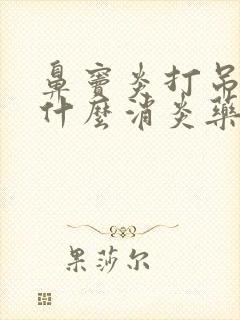 鼻窦炎打吊
什麼消炎藥
果莎尔